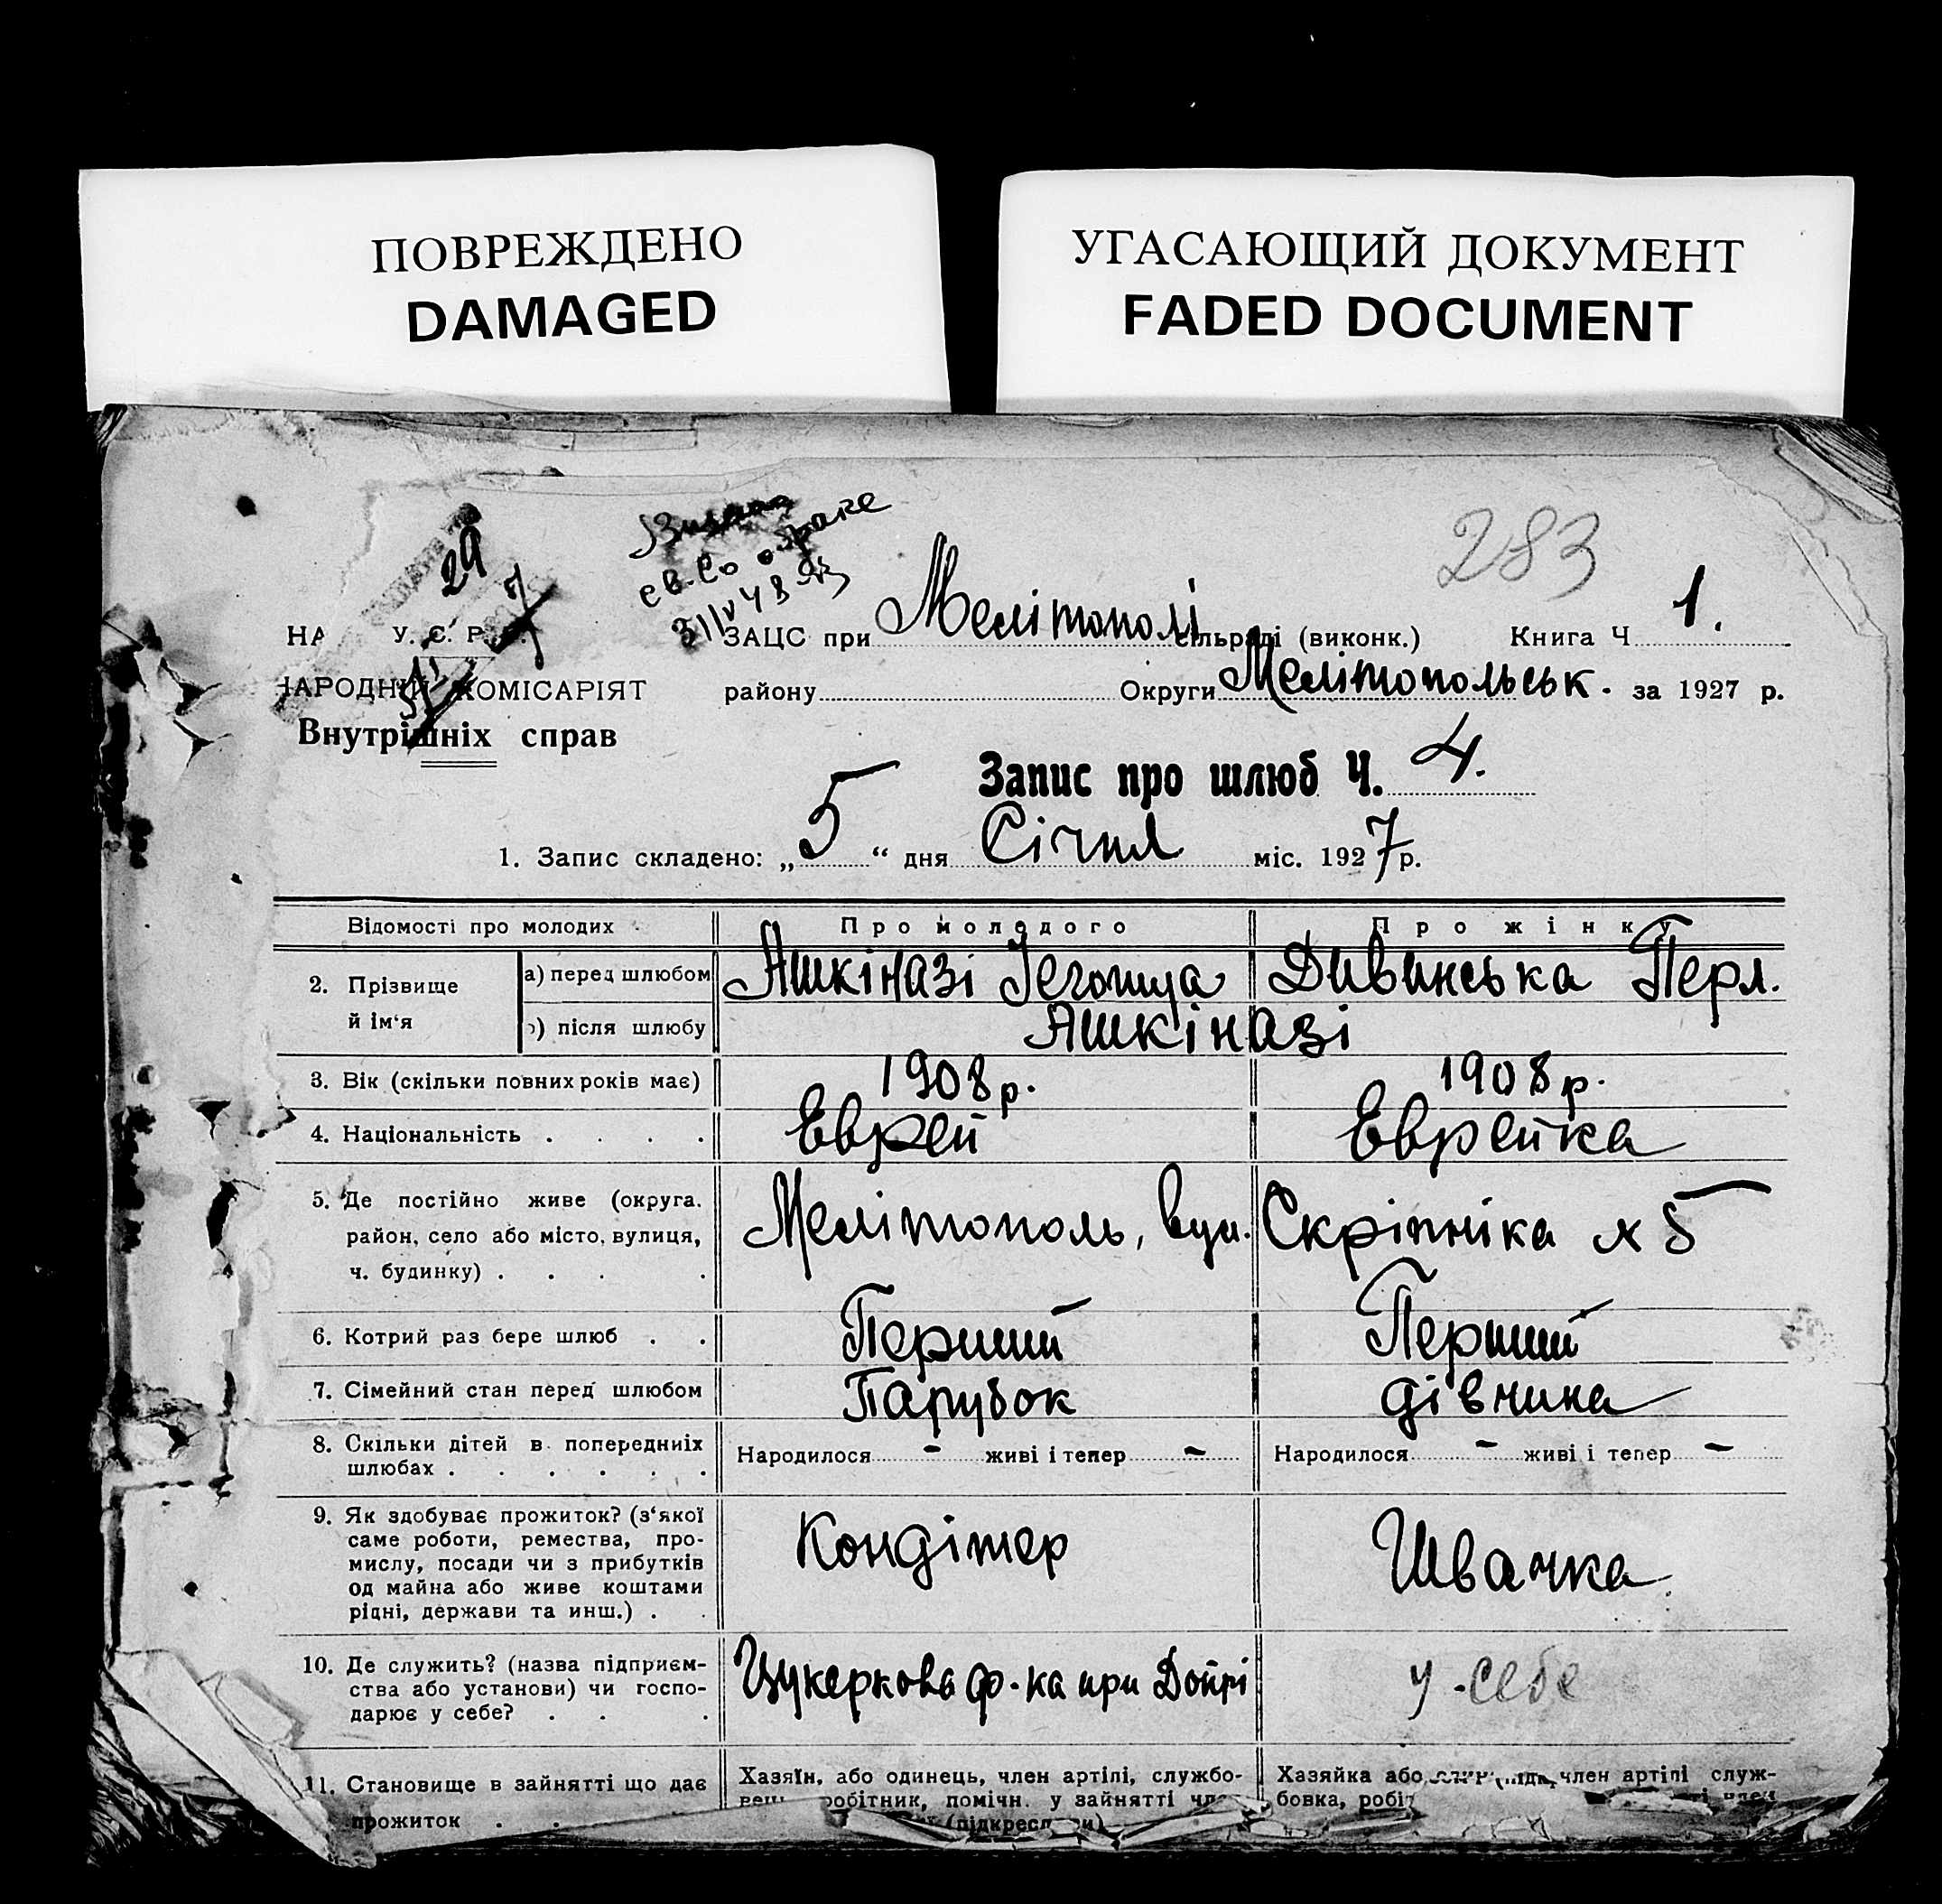 ПОВРЕЖДЕНО
DAMAGED
УГАСАЮЩИЙ ДОКУМЕНТ
FADED DOCUMENT
29
о браке
283
НА У. С. Р. Р.
НАРОДНИЙ КОМІСАРІЯТ
Внутрішніх справ
ЗАЦС при Мелітополі сільраді (виконк.) Книга Ч 1.
району Округи Мелітопольськ. за 1927 р.
Запис про шлюб Ч. 4.
1. Запис складено: „5“ дня Січня міс. 1927 р.
Відомості про молодих Про молодого Про жінку
2. Прізвище й ім‘я
а) перед шлюбом Ашкіназі Дивинська Перл.
б) після шлюбу Ашкіназі
3. Вік (скільки повних років має) 1908 р. 1908 р.
4. Національність . . . . Еврей Еврейка
5. Де постійно живе (округа.
район, село або місто, вулиця,
ч. будинку) . . . . Мелітополь, вул. Скріпніка № 5
6. Котрий раз бере шлюб . . Перший Перший
7. Сімейний стан перед шлюбом Парубок дівчина
8. Скільки дітей в попередниіх
шлюбах . . . . . . Народилося - живі і тепер - Народилося - живі і тепер -
9. Як здобуває прожиток? (з‘якої
саме роботи, ремества, про-
мислу, посади чи з прибутків
од майна або живе коштами
рідні, держави та инш.) . . Кондітер Швачка
10. Де служить? (назва підприєм-
ства або установи) чи госпо-
дарює у себе? . . . Цукеркова ф-ка при Допрі у себе
11. Становище в зайнятті що дає
прожиток . .
Хазяїн, або одинець, член артілі, службо-
робітник, помічн. у зайнятті
(підкресл
Хазяйка або член артілі служ-
бовка, робіт